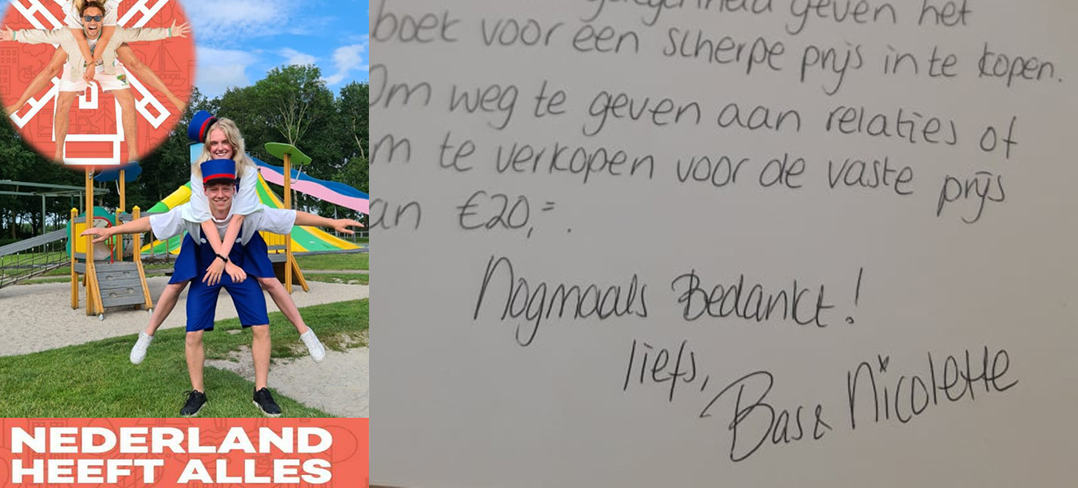 NEDERLAND
HEEFT ALLES
geven het
boek voor een scherpe prijs in te kopen.
Om weg te geven aan relaties of
m te verkopen voor de vaste prijs
an €20,=.
Nogmaals Bedankt!
liefs,
Bas & Nicolette